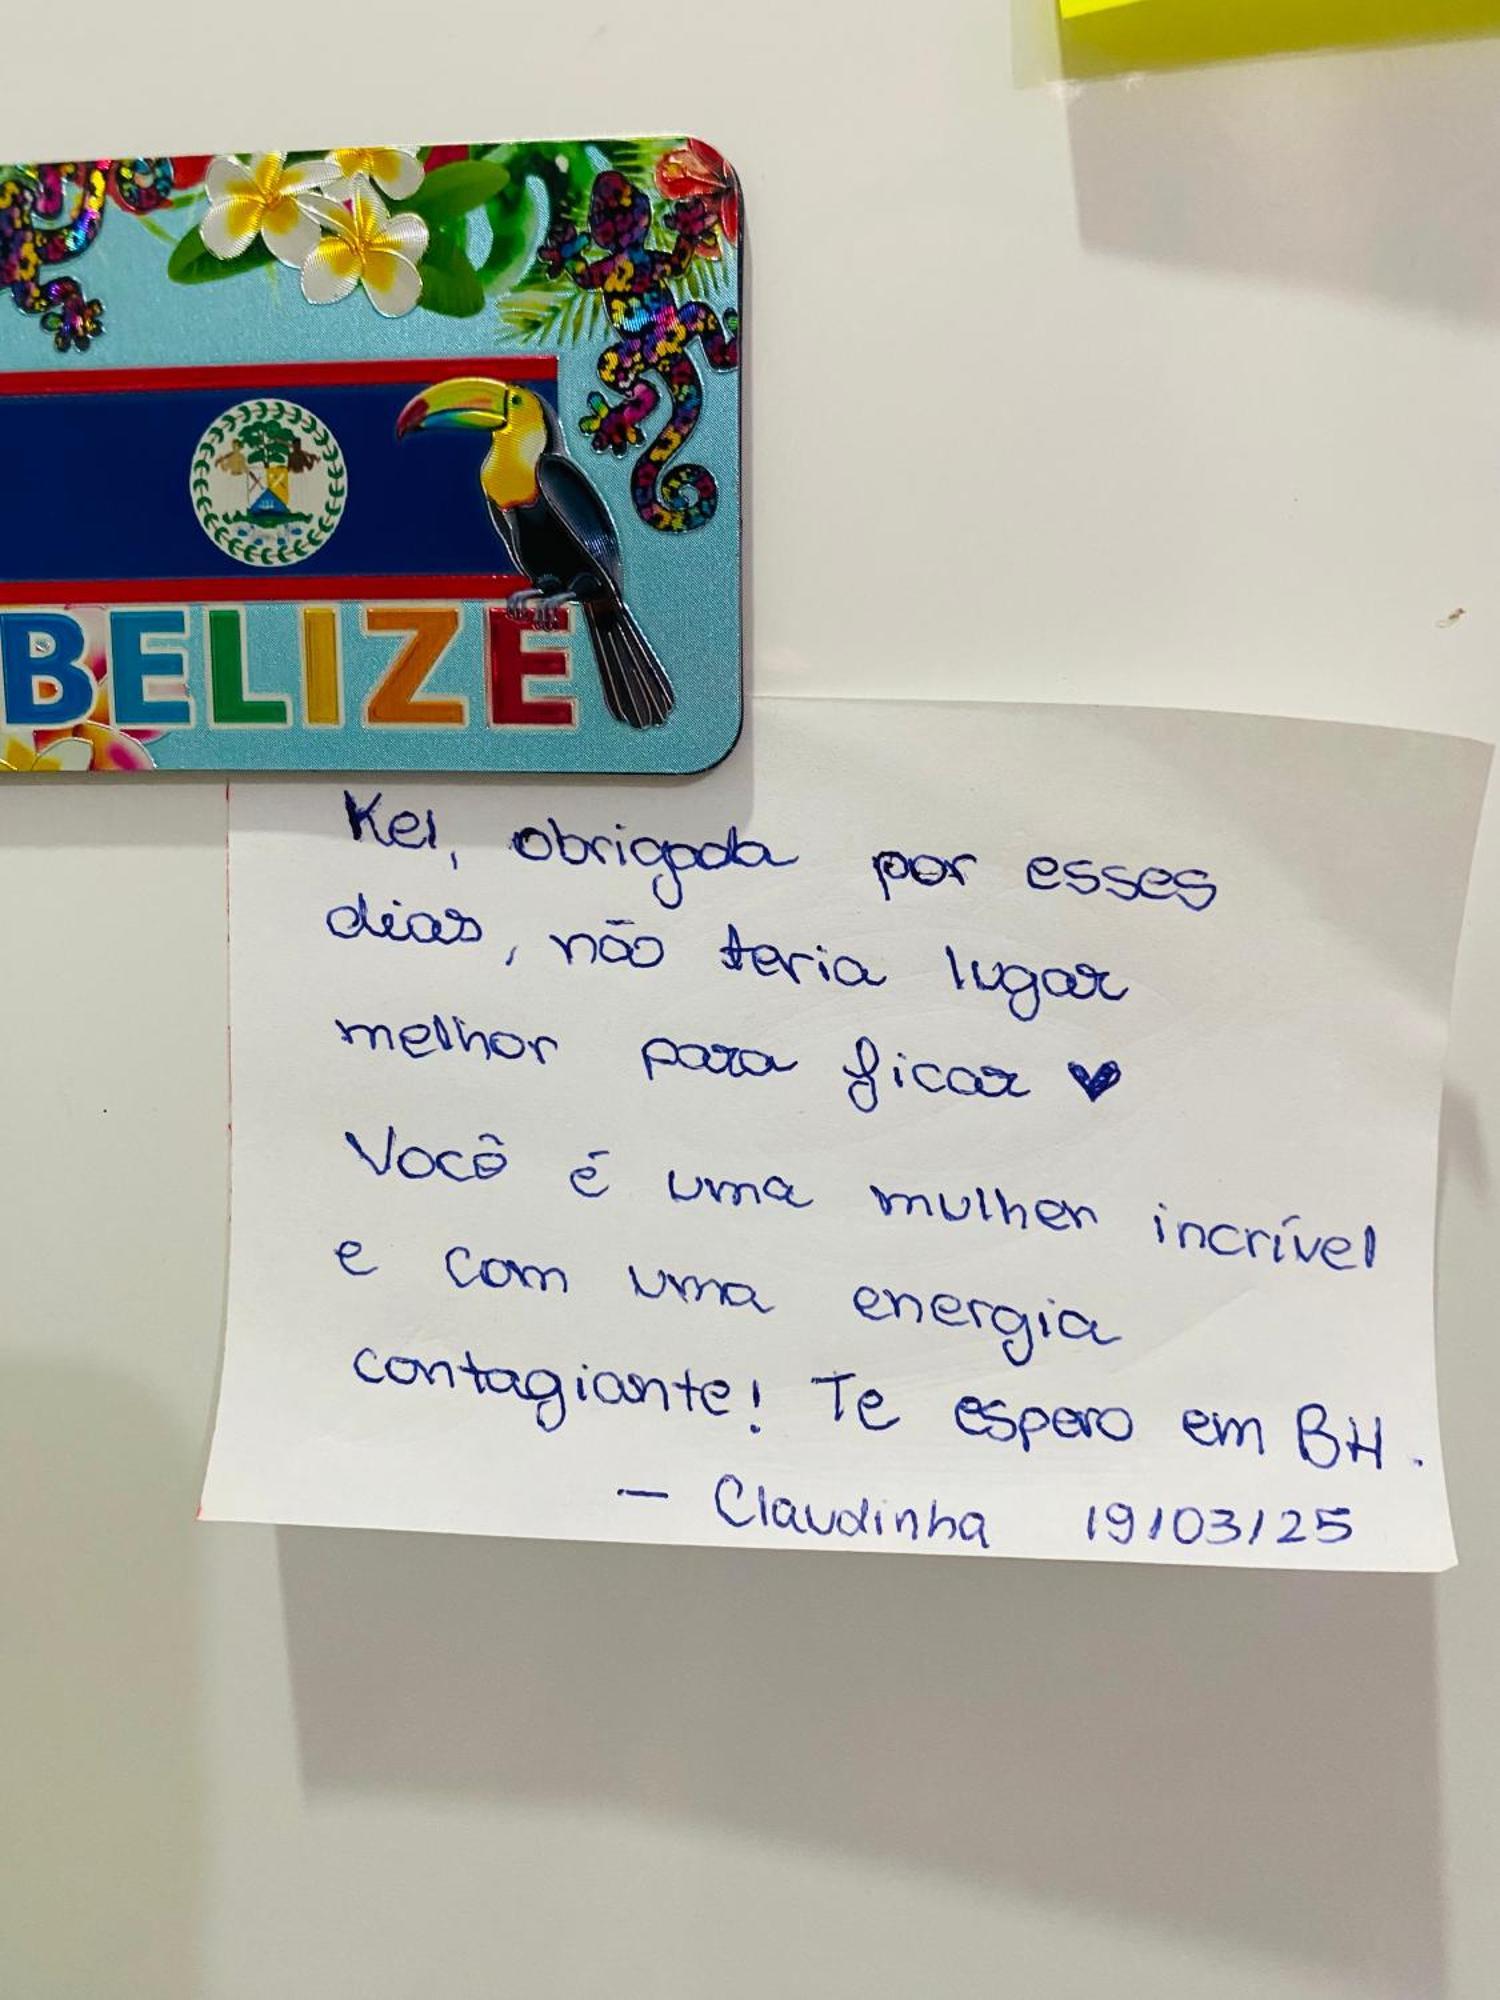 BELIZE
Kel, obrigada por esses
dias, não teria lugar
melhor para ficar ♥
Você é uma mulher incrível
e com uma energia
contagiante! Te espero em BH.
— Claudinha 19/03/25